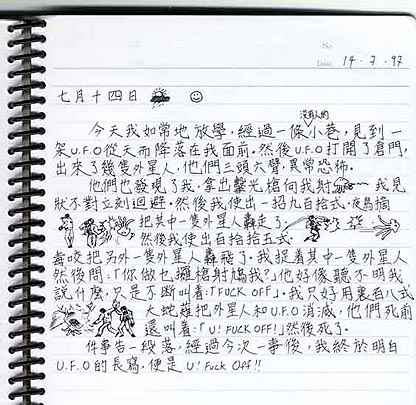 No.
Date 14.7.97
七月十四日
沒有人的
今天我如常地放學,經過一條小巷,見到一
架U.F.O從天而降落在我面前.然後U.F.O打開了倉門,
出來了幾隻外星人,他們三頭六臂,異常恐怖.
他們也發現了我,拿出擊光槍向我射 我見
狀不對立刻迴避.然後我使出一招九百拾式.
把其中一隻外星人轟走了,
然後我使出百拾拾五式.
毒咬把另外一隻外星人轟飛了.我捉着其中一隻外星人
然後問:「你做乜攞槍射鳩我?」他好像聽不明我
說什麼,只是不斷叫着:「FUCK OFF」.我只好用裏百八式
大蛇薙把外星人和U.F.O消滅,他們死前
還叫着:「U! FUCK OFF!」然後死了.
件事告一段落,經過今次一事後,我終於明白
U.F.O的長寫,便是U! FUCK OFF!!